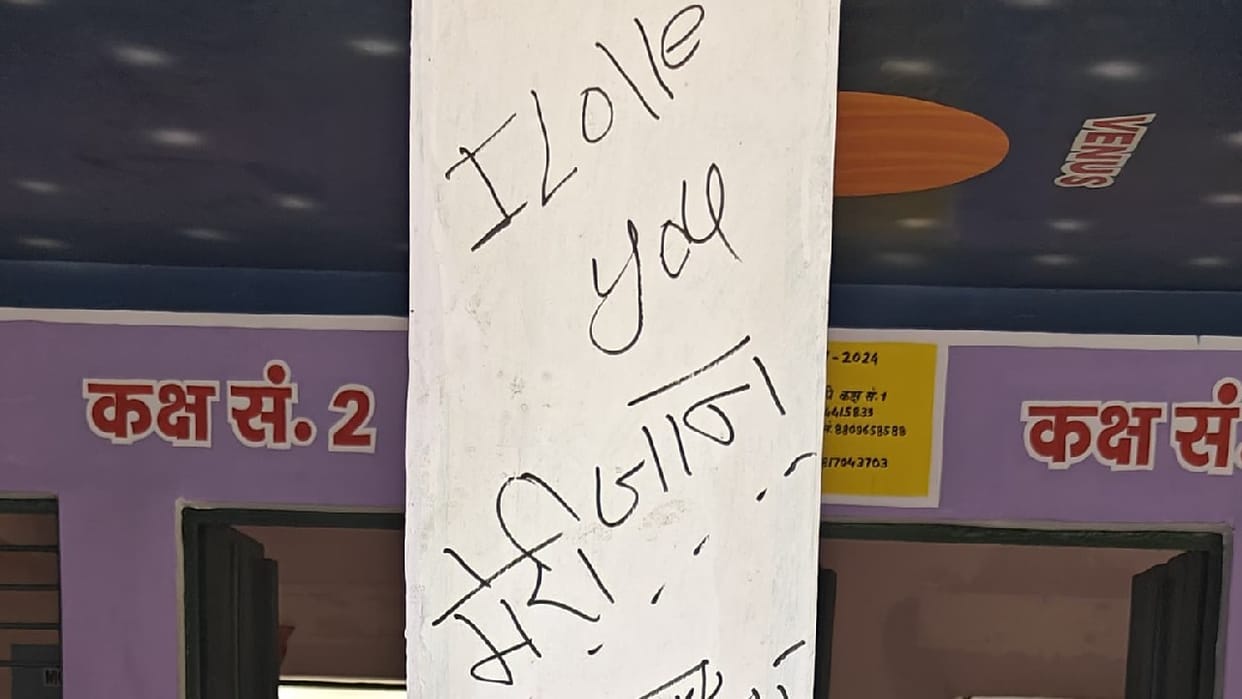 I Lolle
you
मेरी जान
VENUS
कक्ष सं. 2
-2024
कक्ष सं.1
4415833
8809658588
817043703
कक्ष सं